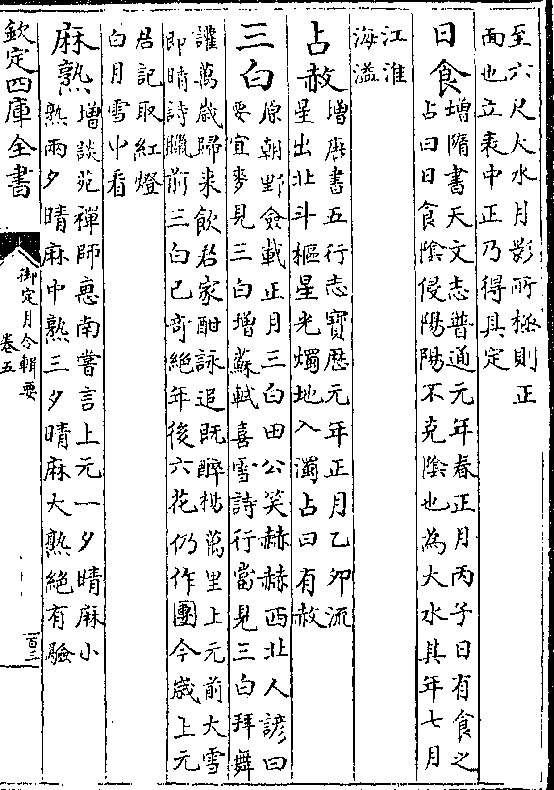 至六尺人水月影所極則正
面也立表中正乃得其定
日食 增隋書天文志普通元年春正月丙子日有食之
占曰日食陰侵陽陽不克陰也為大水其年七月
江淮
海溢
占赦 增唐書五行志寳歴元年正月乙卯流
星出北斗樞星光燭地入濁占曰有赦
三白 原朝野僉載正月三白田公笑赫赫西北人諺曰
要宜麥見三白增蘇軾喜雪詩行當見三白拜舞
讙萬歲歸來飲君家酣詠追既醉楊萬里上元前大雪
即晴詩臘前三白已奇絶年後六花仍作團今歲上元
君記取紅燈
白月雪中看
麻熟 增談苑禪師惠南嘗言上元一夕晴麻小
熟兩夕晴麻中熟三夕晴麻大熟絶有驗
欽定四庫全書
御定月令輯要
卷五
百三